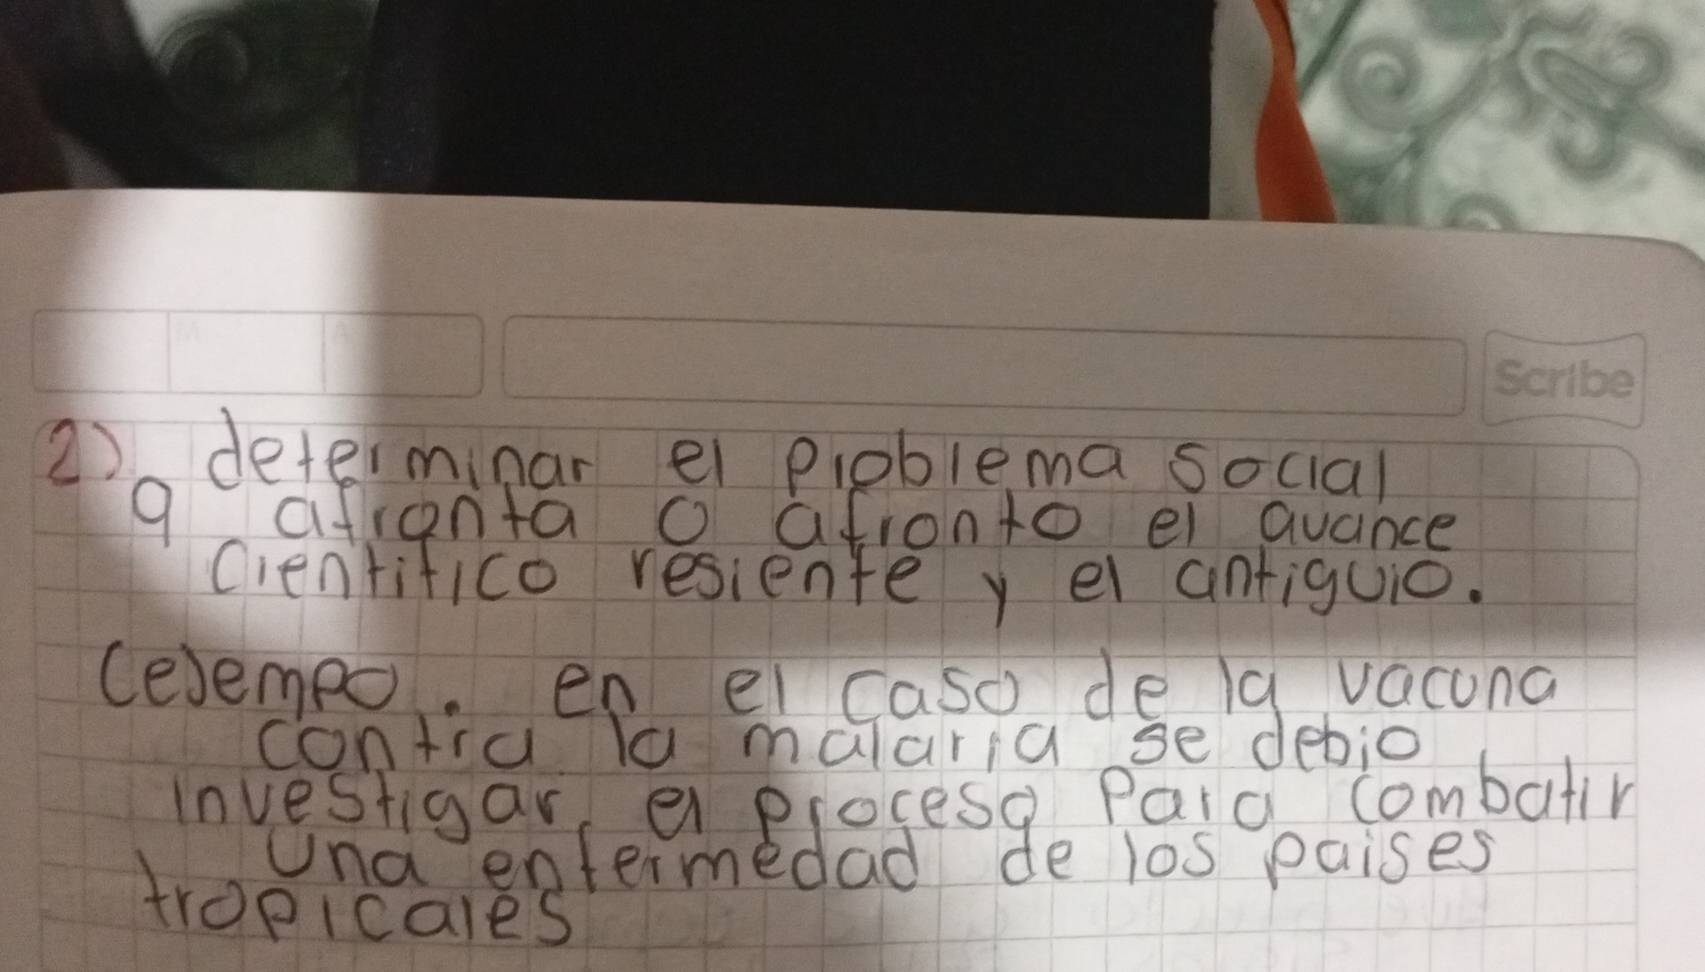 Scribe
2) determinar el problema social
q afronta o afronto el avance
cientifico resiente y el antiguio.
(ejempo. en el caso de la vacuna
contra la malaria se debio
investigar, el proceso para combatir
una enfermedad de los paises
tropicales